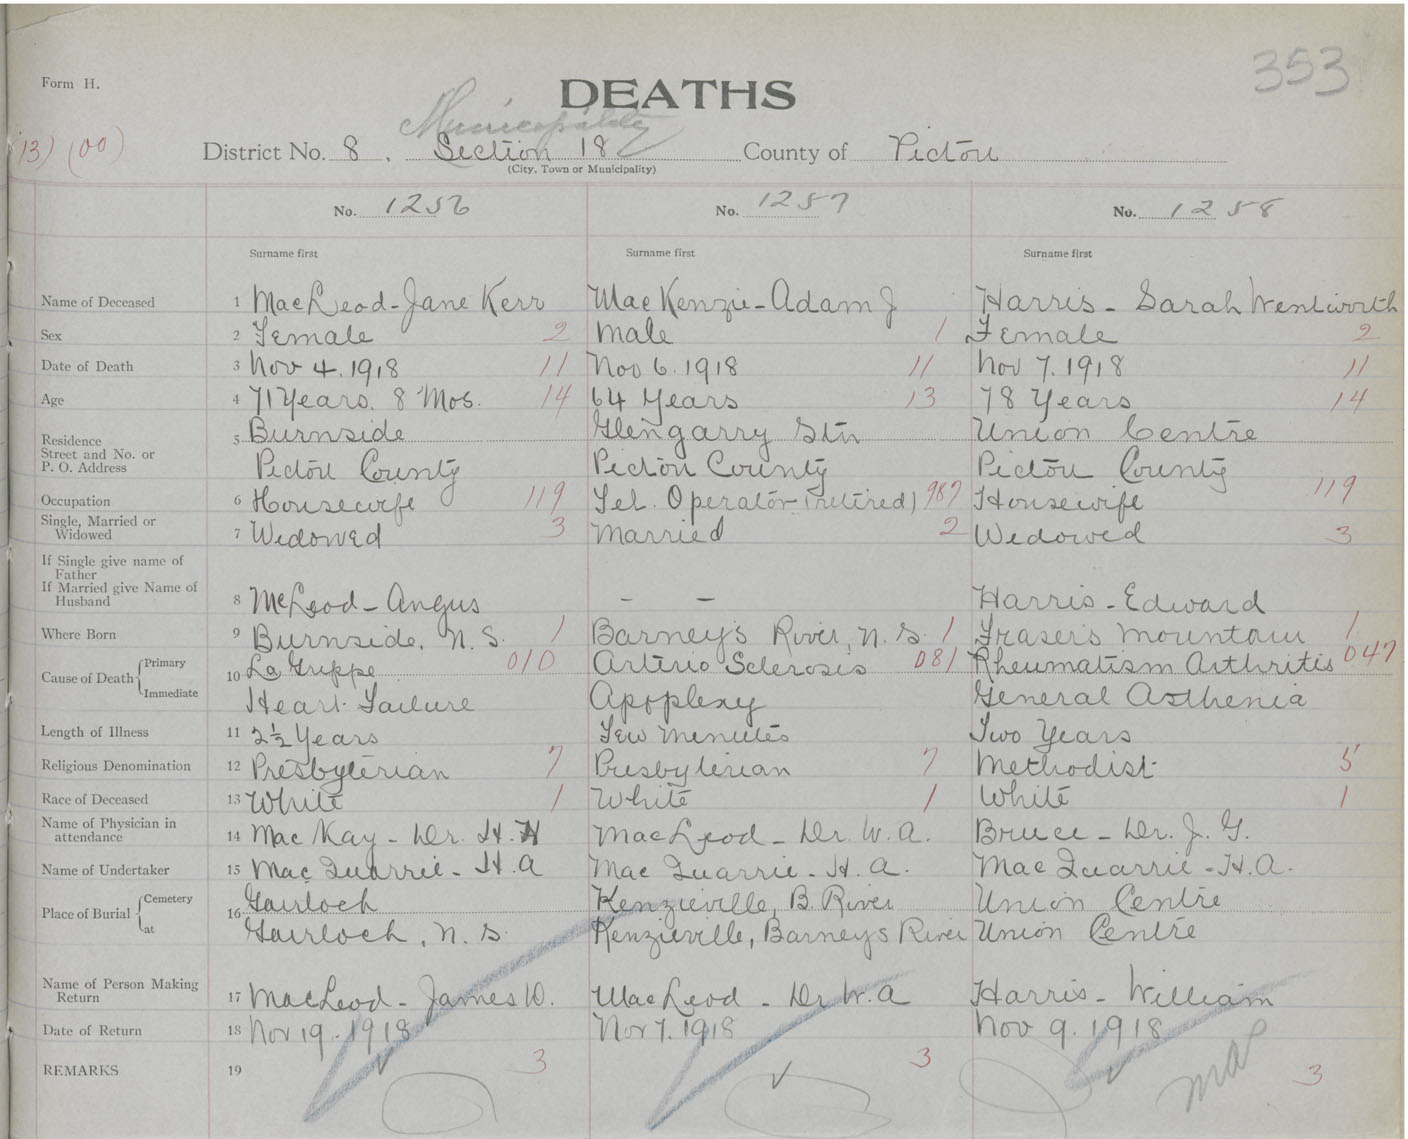 353
Form H.
DEATHS
Municipality
(13) (00)
District No. 8. Section 18 County of Pictou
(City, Town or Municipality)
No. 1256 No. 1257 No. 1258
Surname first Surname first Surname first
Name of Deceased 1 MacLeod-Jane Kerr MacKenzie-Adam J Harris - Sarah Wentworth
Sex 2 Female 2 Male 1 Female 2
Date of Death 3 Nov 4. 1918 11 Nov 6. 1918 11 Nov 7. 1918 11
Age 4 71 Years. 8 Mos. 14 64 Years 13 78 Years 14
Residence Street and No. or P. O. Address 5 Burnside Glengarry Stn Union Centre
Pictou County Pictou County Pictou County
Occupation 6 Housewife 119 Tel. Operator (retired) 987 Housewife 119
Single, Married or Widowed 7 Widowed 3 Married 2 Widowed 3
If Single give name of Father
If Married give Name of Husband 8 McLeod-Angus – – Harris-Edward
Where Born 9 Burnside, N.S. 1 Barney's River, N.S. 1 Frasers Mountain 1
Cause of Death Primary 10 La Grippe 010 Arterio Sclerosis 081 Rheumatism Arthritis 047
Immediate Heart Failure Apoplexy General Asthenia
Length of Illness 11 2½ Years Few Minutes Two Years
Religious Denomination 12 Presbyterian 7 Presbyterian 7 Methodist 5
Race of Deceased 13 White 1 White 1 White 1
Name of Physician in attendance 14 MacKay - Dr. H.H MacLeod - Dr. W.A. Bruce - Dr. J. G.
Name of Undertaker 15 MacQuarrie - H.A MacQuarrie - H.A. MacQuarrie - H.A.
Place of Burial Cemetery 16 Gairloch Kenzieville, B. River Union Centre
at Gairloch, N.S. Kenzieville, Barneys River Union Centre
Name of Person Making Return 17 MacLeod - James D. MacLeod - Dr W.A Harris - William
Date of Return 18 Nov 19. 1918 Nov 7. 1918 Nov 9. 1918
REMARKS 19 3 3 3